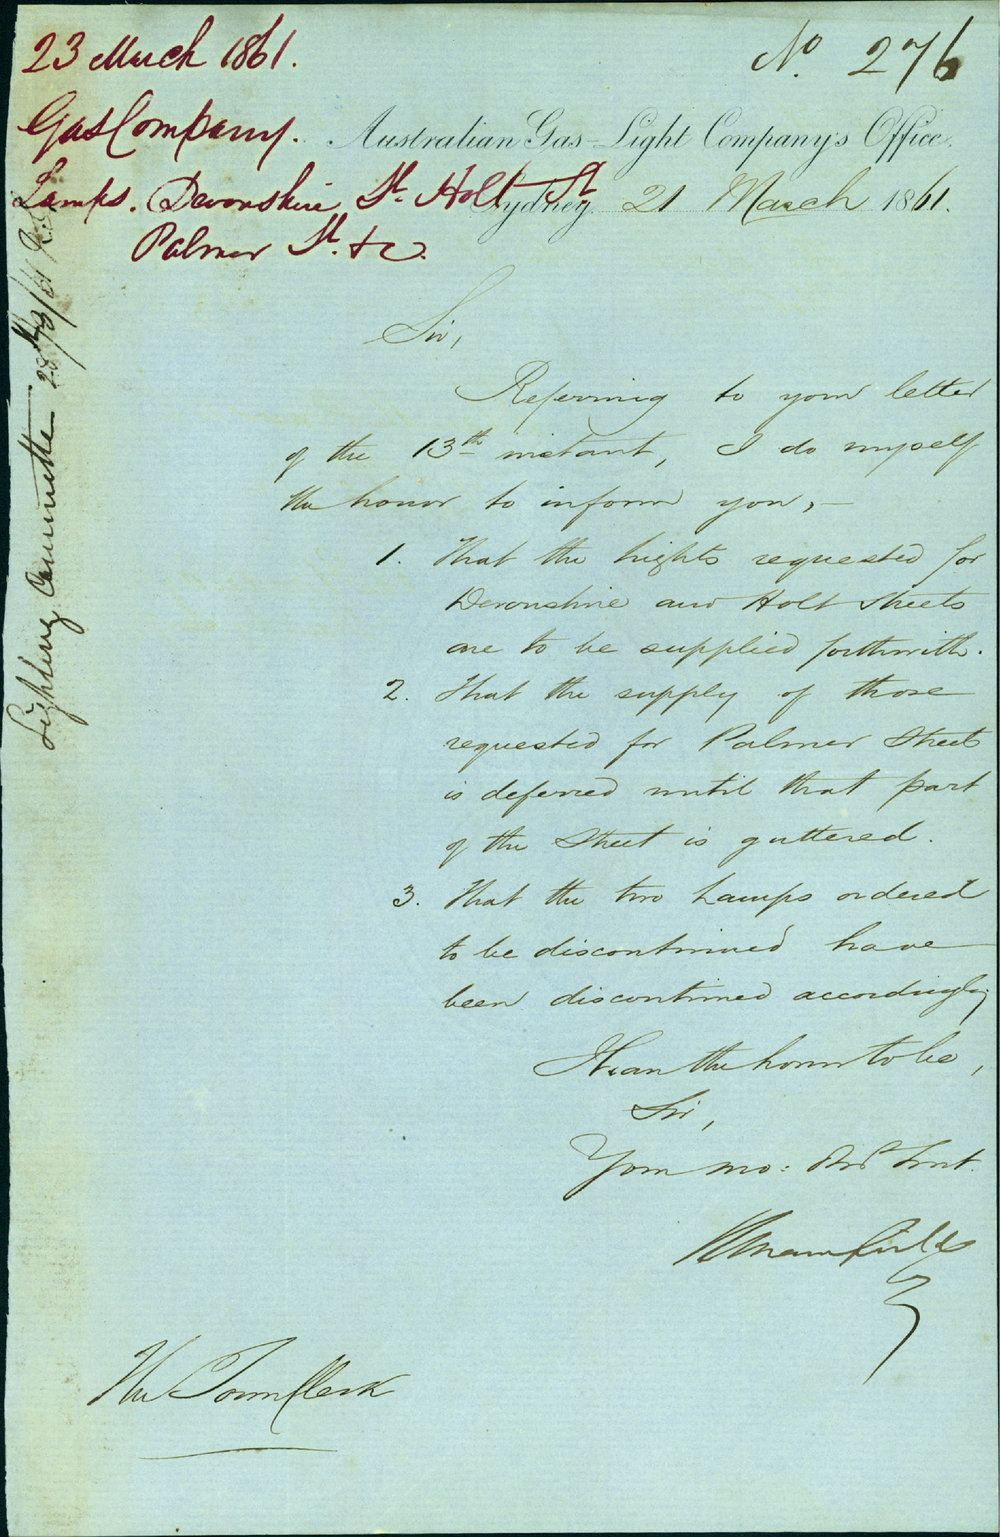 23 March 1861.
No. 276
Gas Company.
Australian Gas-Light Company's Office.
Lamps. Devonshire St. Holt St
Sydney. 21 March 1861.
Palmer St. &c.
Lighting Committee 28th/3/61
Sir,
Referring to your letter
of the 13th instant, I do myself
the honor to inform you,—
1. That the lights requested for
Devonshire and Holt Streets
are to be supplied forthwith.
2. That the supply of those
requested for Palmer Street
is deferred until that part
of the Street is guttered.
3. That the two Lamps ordered
to be discontinued have
been discontinued accordingly
I have the honor to be,
Sir,
Your mo: Obt Servt.
The Town Clerk